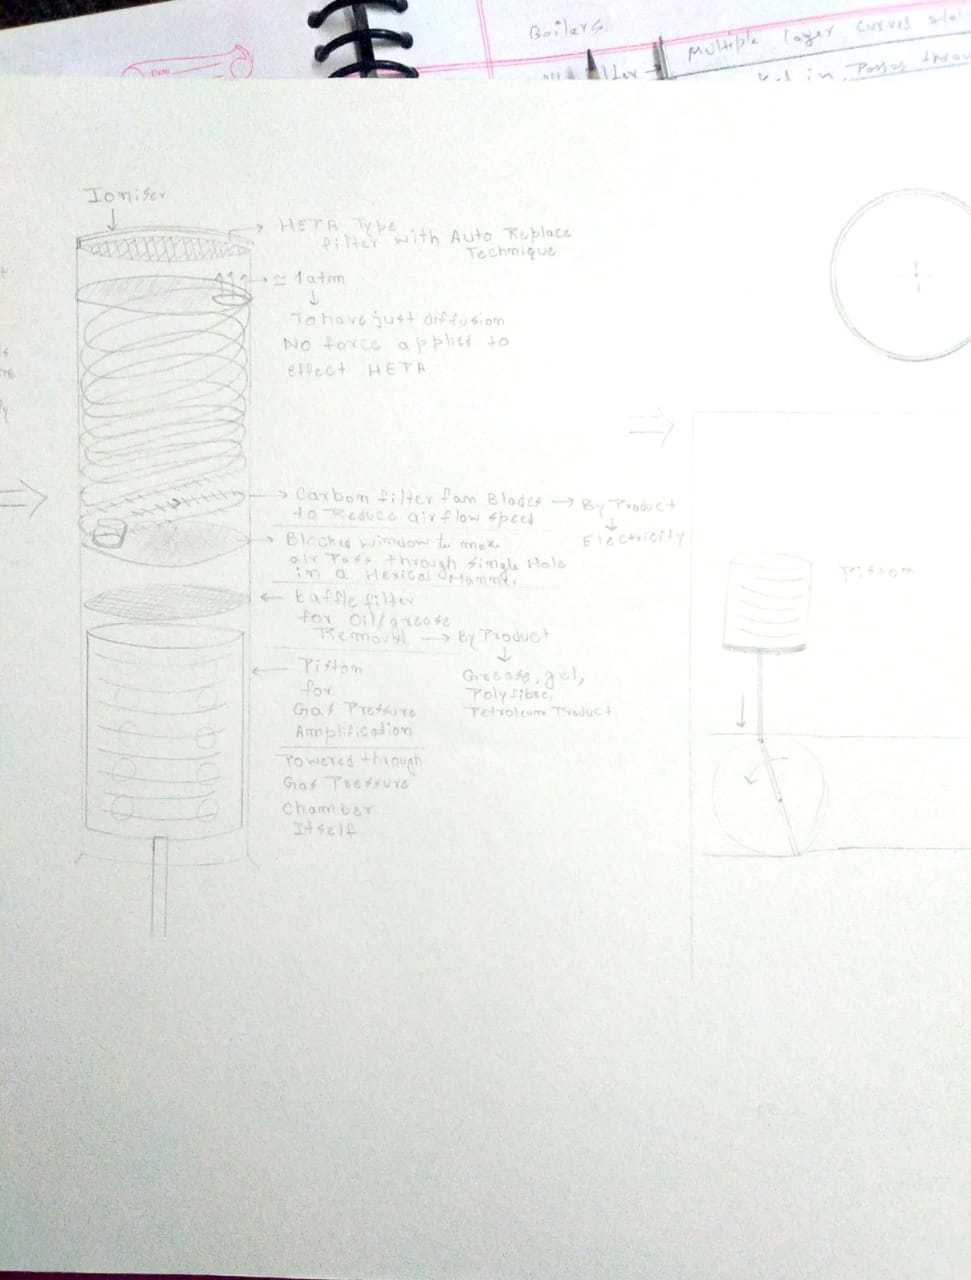 Boilers
Multiple layer curves
in Passes
Ioniser
HETA Type
filter with Auto Replace
Technique
≃ 1atm
To have just diffusion
No force applied to
effect HETA
Carbon filter fan Blades → By Product
to Reduce airflow speed
Electricity
Blocked window to make
air Pass through single Hole
in a Hexical Manner
Baffle filter
for Oil/grease
Removal → By Product
Grease, gel,
Polyfibre,
Petroleum Product
Piston
for
Gas Pressure
Amplification
Powered through
Gas Pressure
Chamber
Itself
Piston